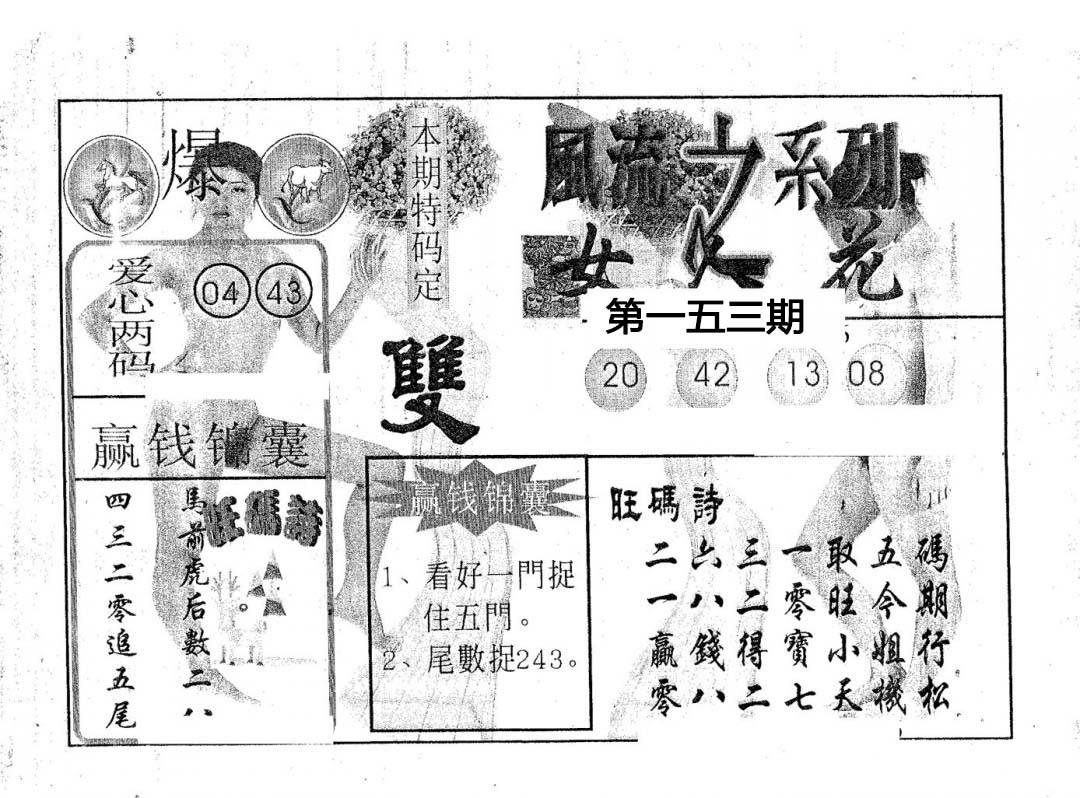 爆
爱心两码
04 43
本期特码定
雙
風流之系列
女人花
第一五三期
20 42 13 08
赢钱锦囊
旺碼詩
馬前虎后數二八。
四三二零追五尾
赢钱锦囊
1、看好一門捉
住五門。
2、尾數捉243。
旺碼詩
碼期行松
五今姐機
取旺小天
一零寶七
三二得二
六八錢八
二一贏零